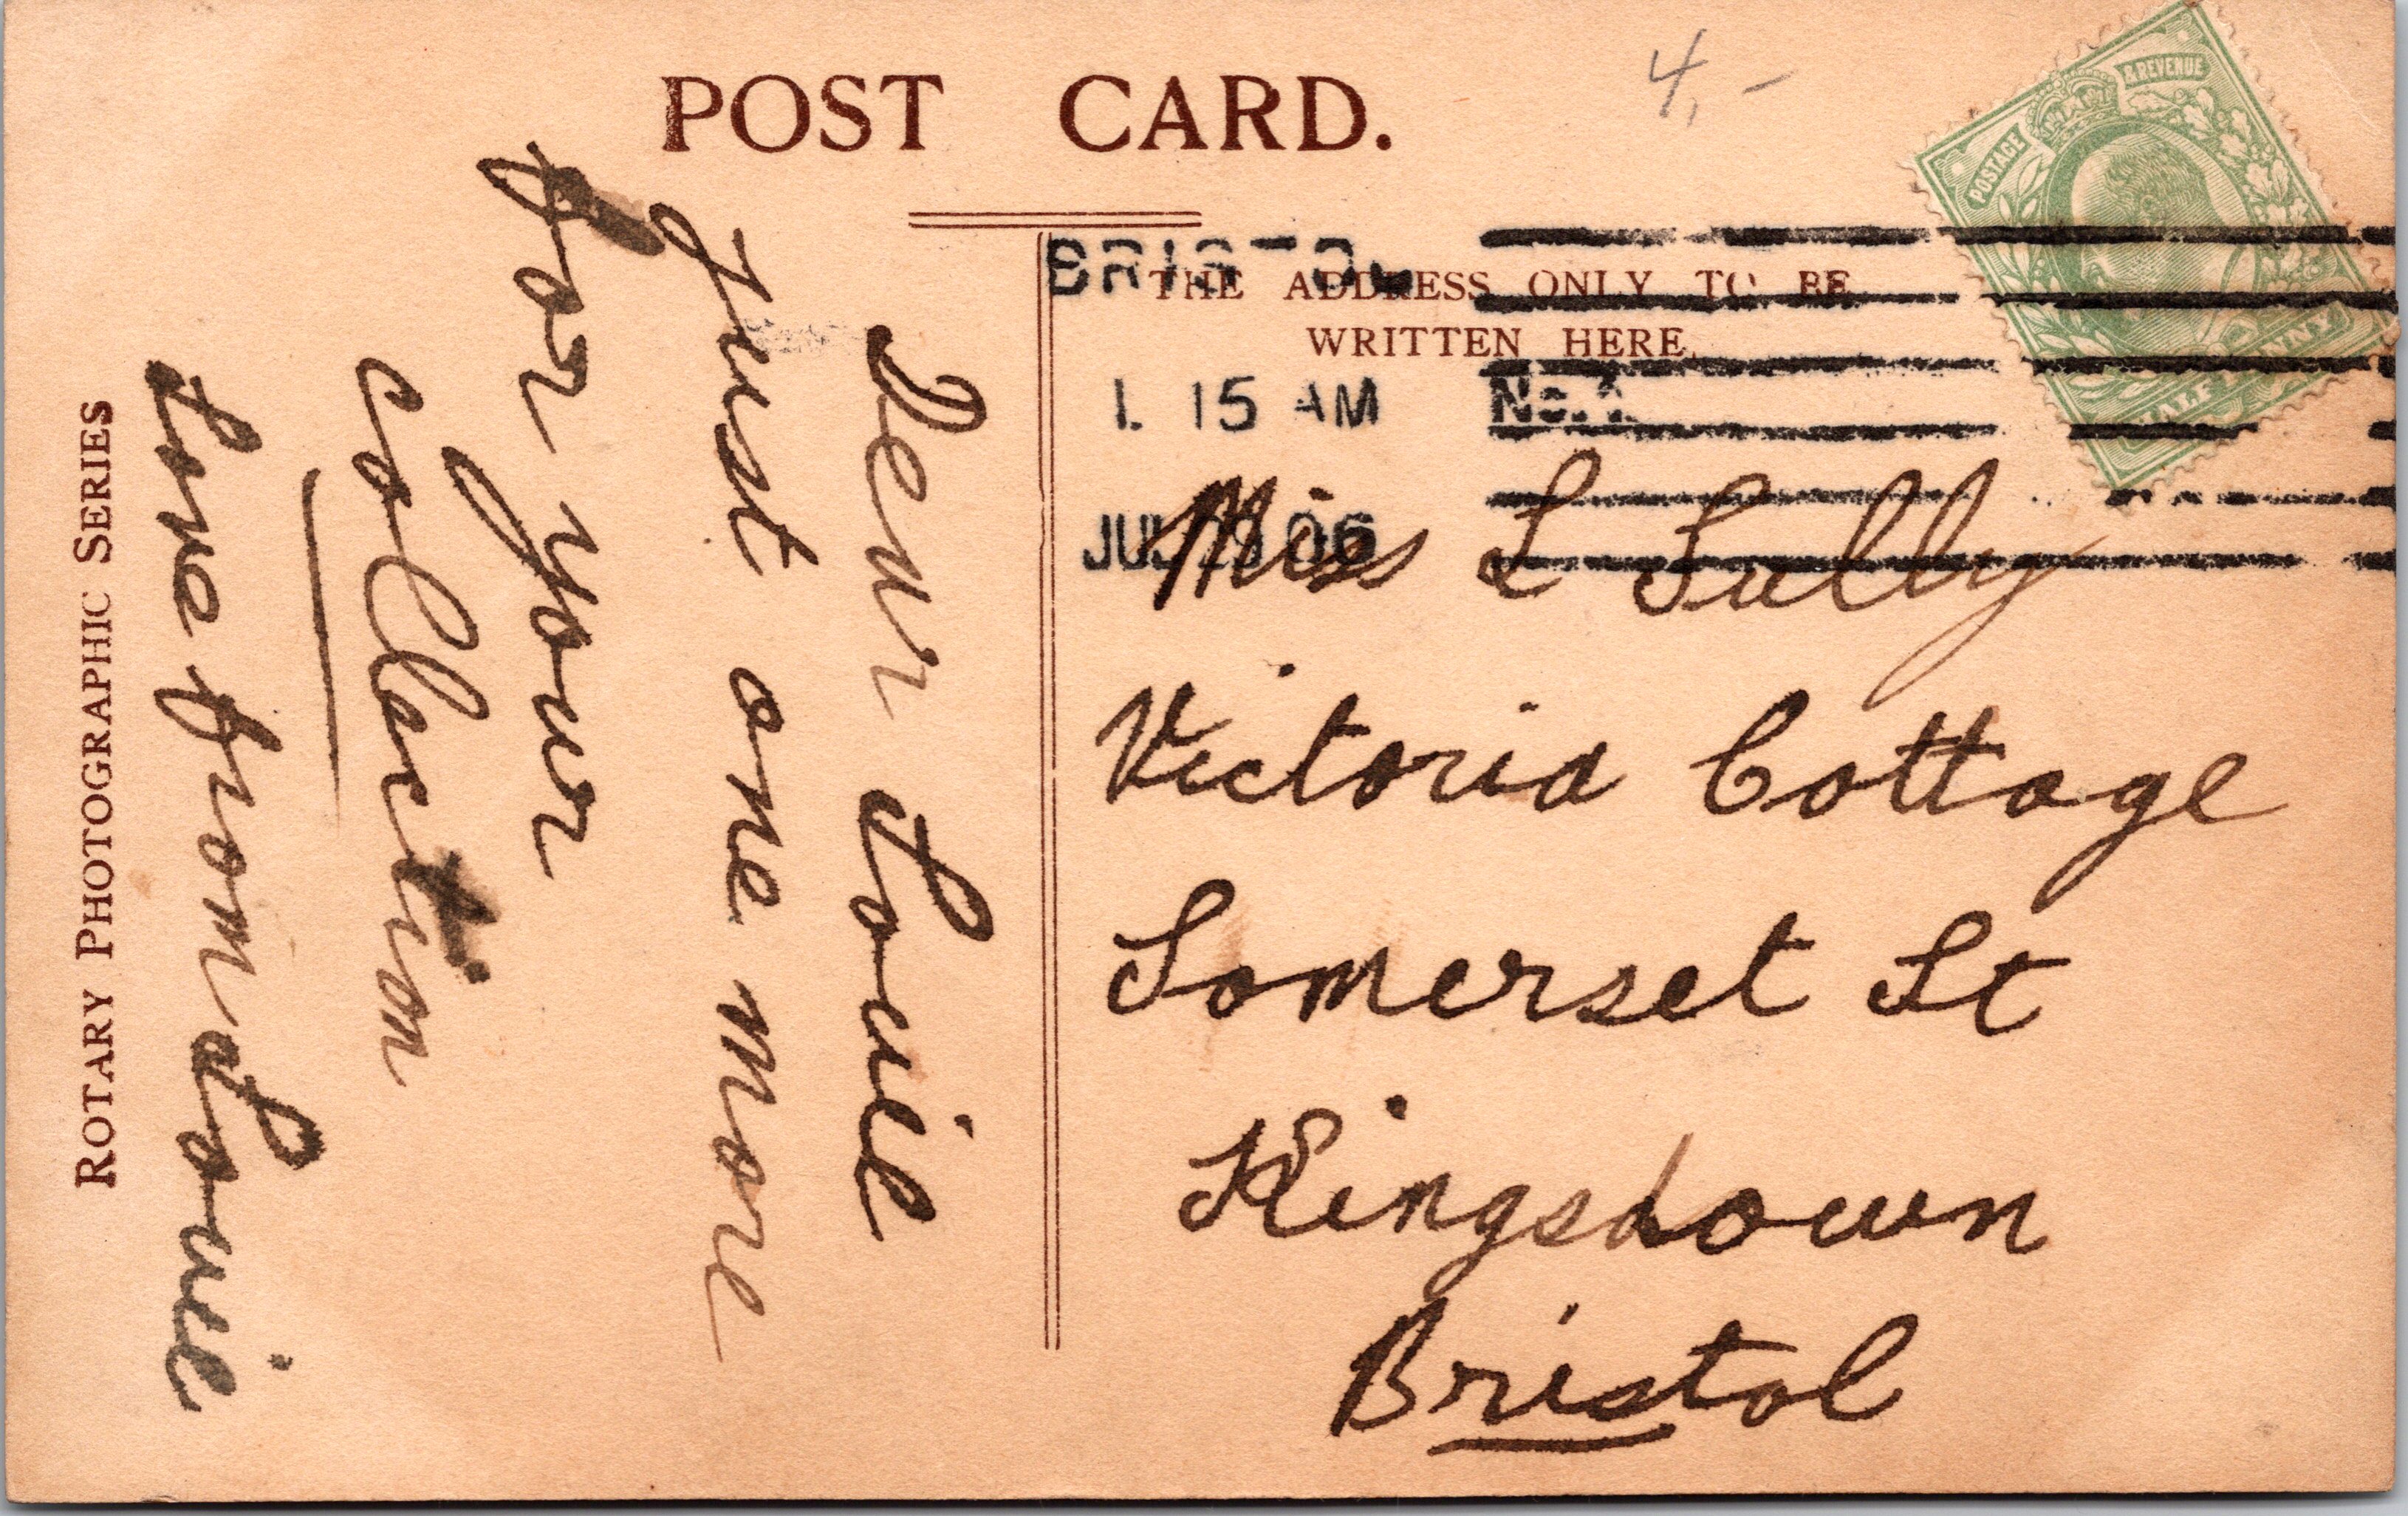 POST CARD.
4,-
POSTAGE & REVENUE
HALF PENNY
BRISTOL
THE ADDRESS ONLY TO BE
WRITTEN HERE
1. 15 AM No.
JUL 06
Dear Louie
just one more
for your
collection
Love from Louie
Miss L Sully
Victoria Cottage
Somerset St
Kingsdown
Bristol
ROTARY PHOTOGRAPHIC SERIES